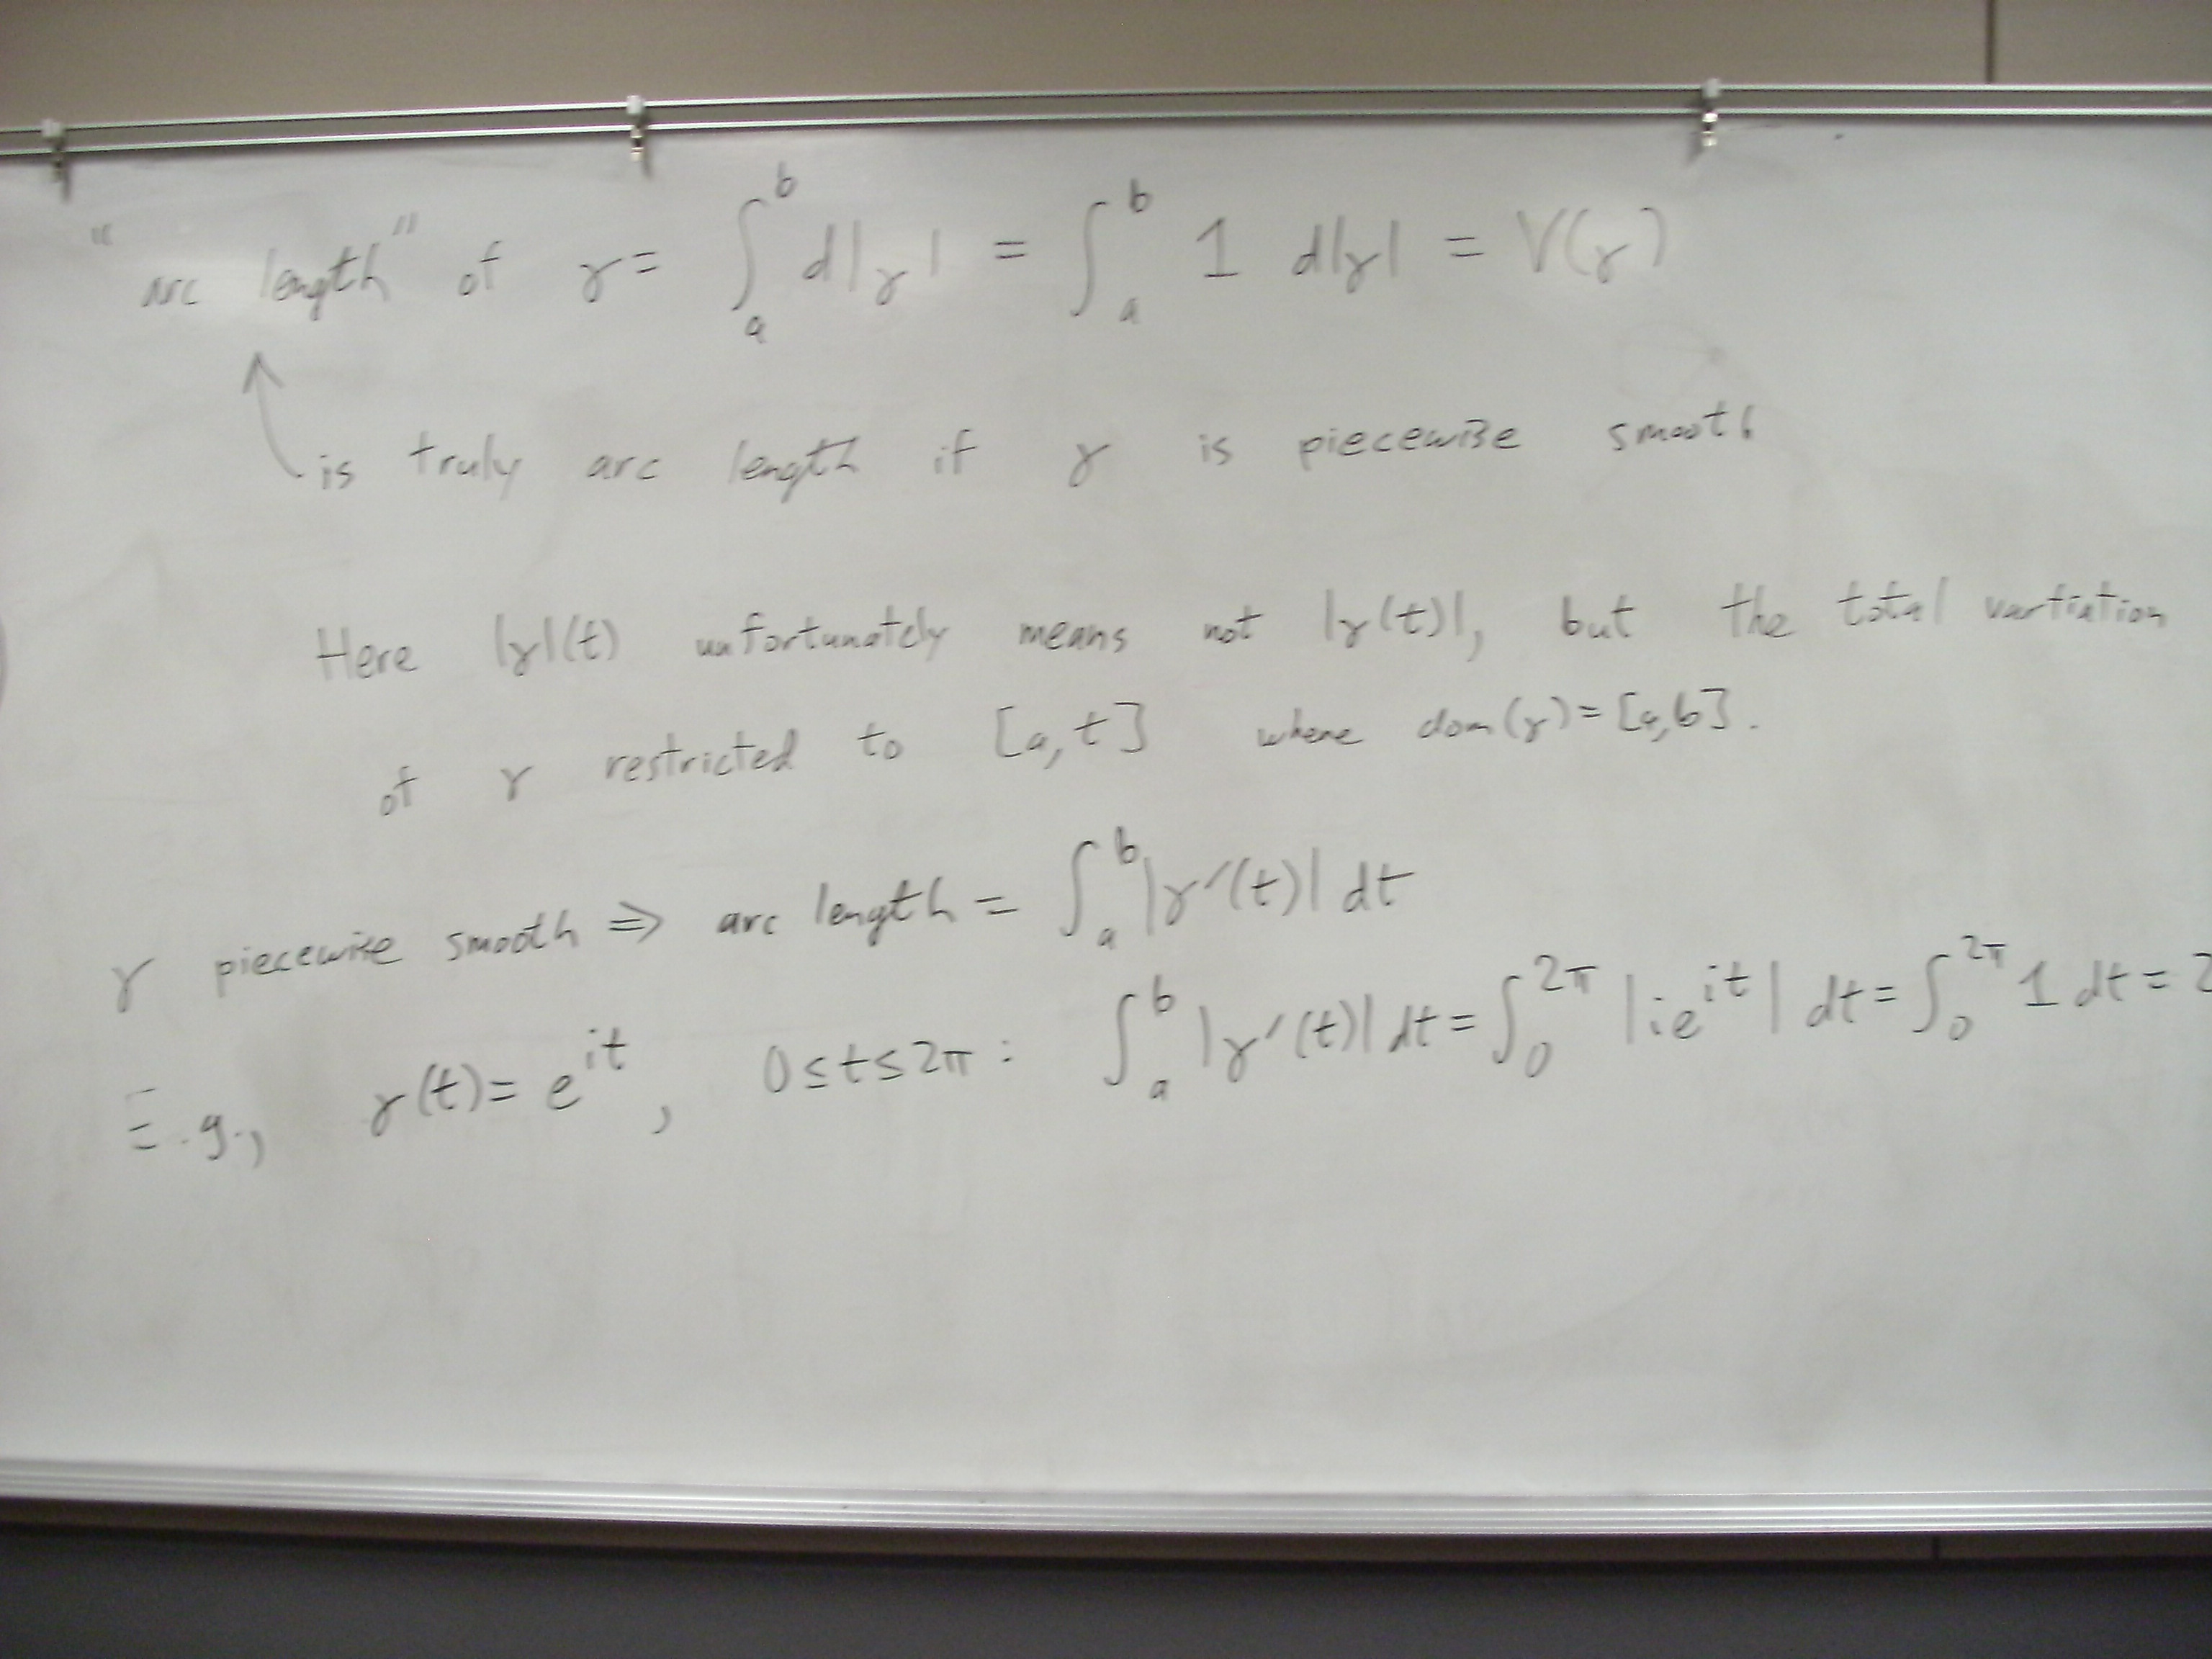 "arc length" of γ = ∫_a^b d|γ| = ∫_a^b 1 d|γ| = V(γ)
is truly arc length if γ is piecewise smooth
Here |γ|(t) unfortunately means not |γ(t)|, but the total vartiation
of γ restricted to [a,t] where dom(γ)=[a,b].
γ piecewise smooth ⇒ arc length = ∫_a^b |γ'(t)| dt
E.g., γ(t)= e^{it}, 0≤t≤2π: ∫_a^b |γ'(t)| dt = ∫_0^{2π} |ie^{it}| dt = ∫_0^{2π} 1 dt = 2